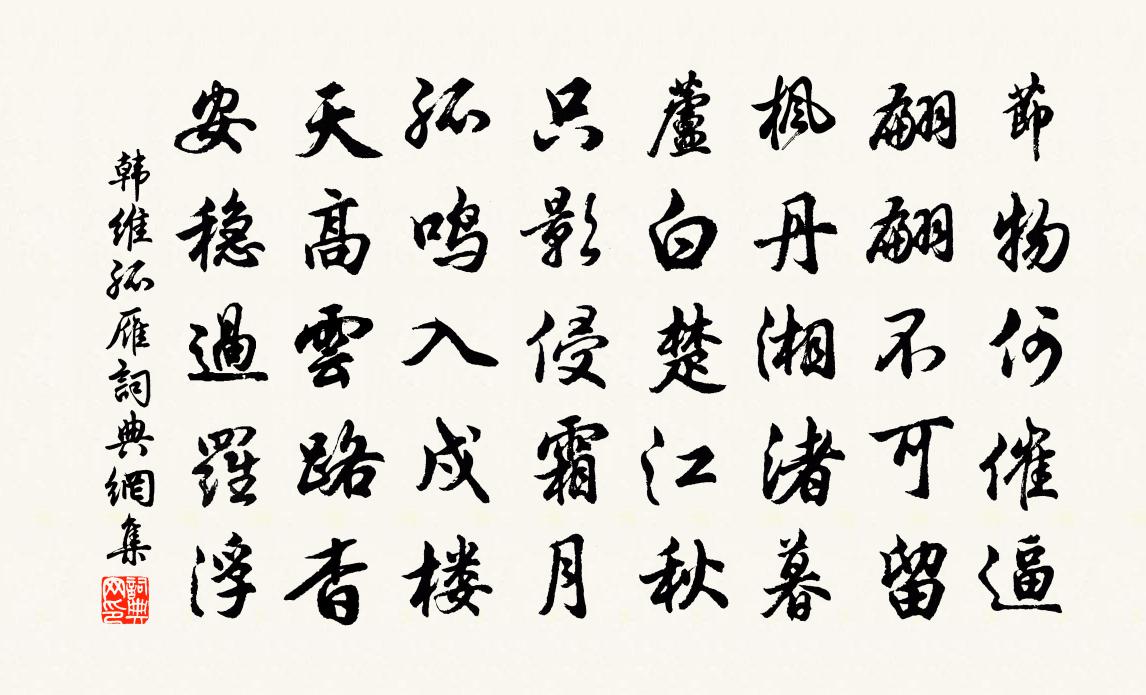 節物何催逼
翩翩不可留
枫丹湘渚暮
蘆白楚江秋
只影侵霜月
孤鸣入戍楼
天高雲路杳
安稳過羅浮
韩维孤雁詞典網集
詞典網印